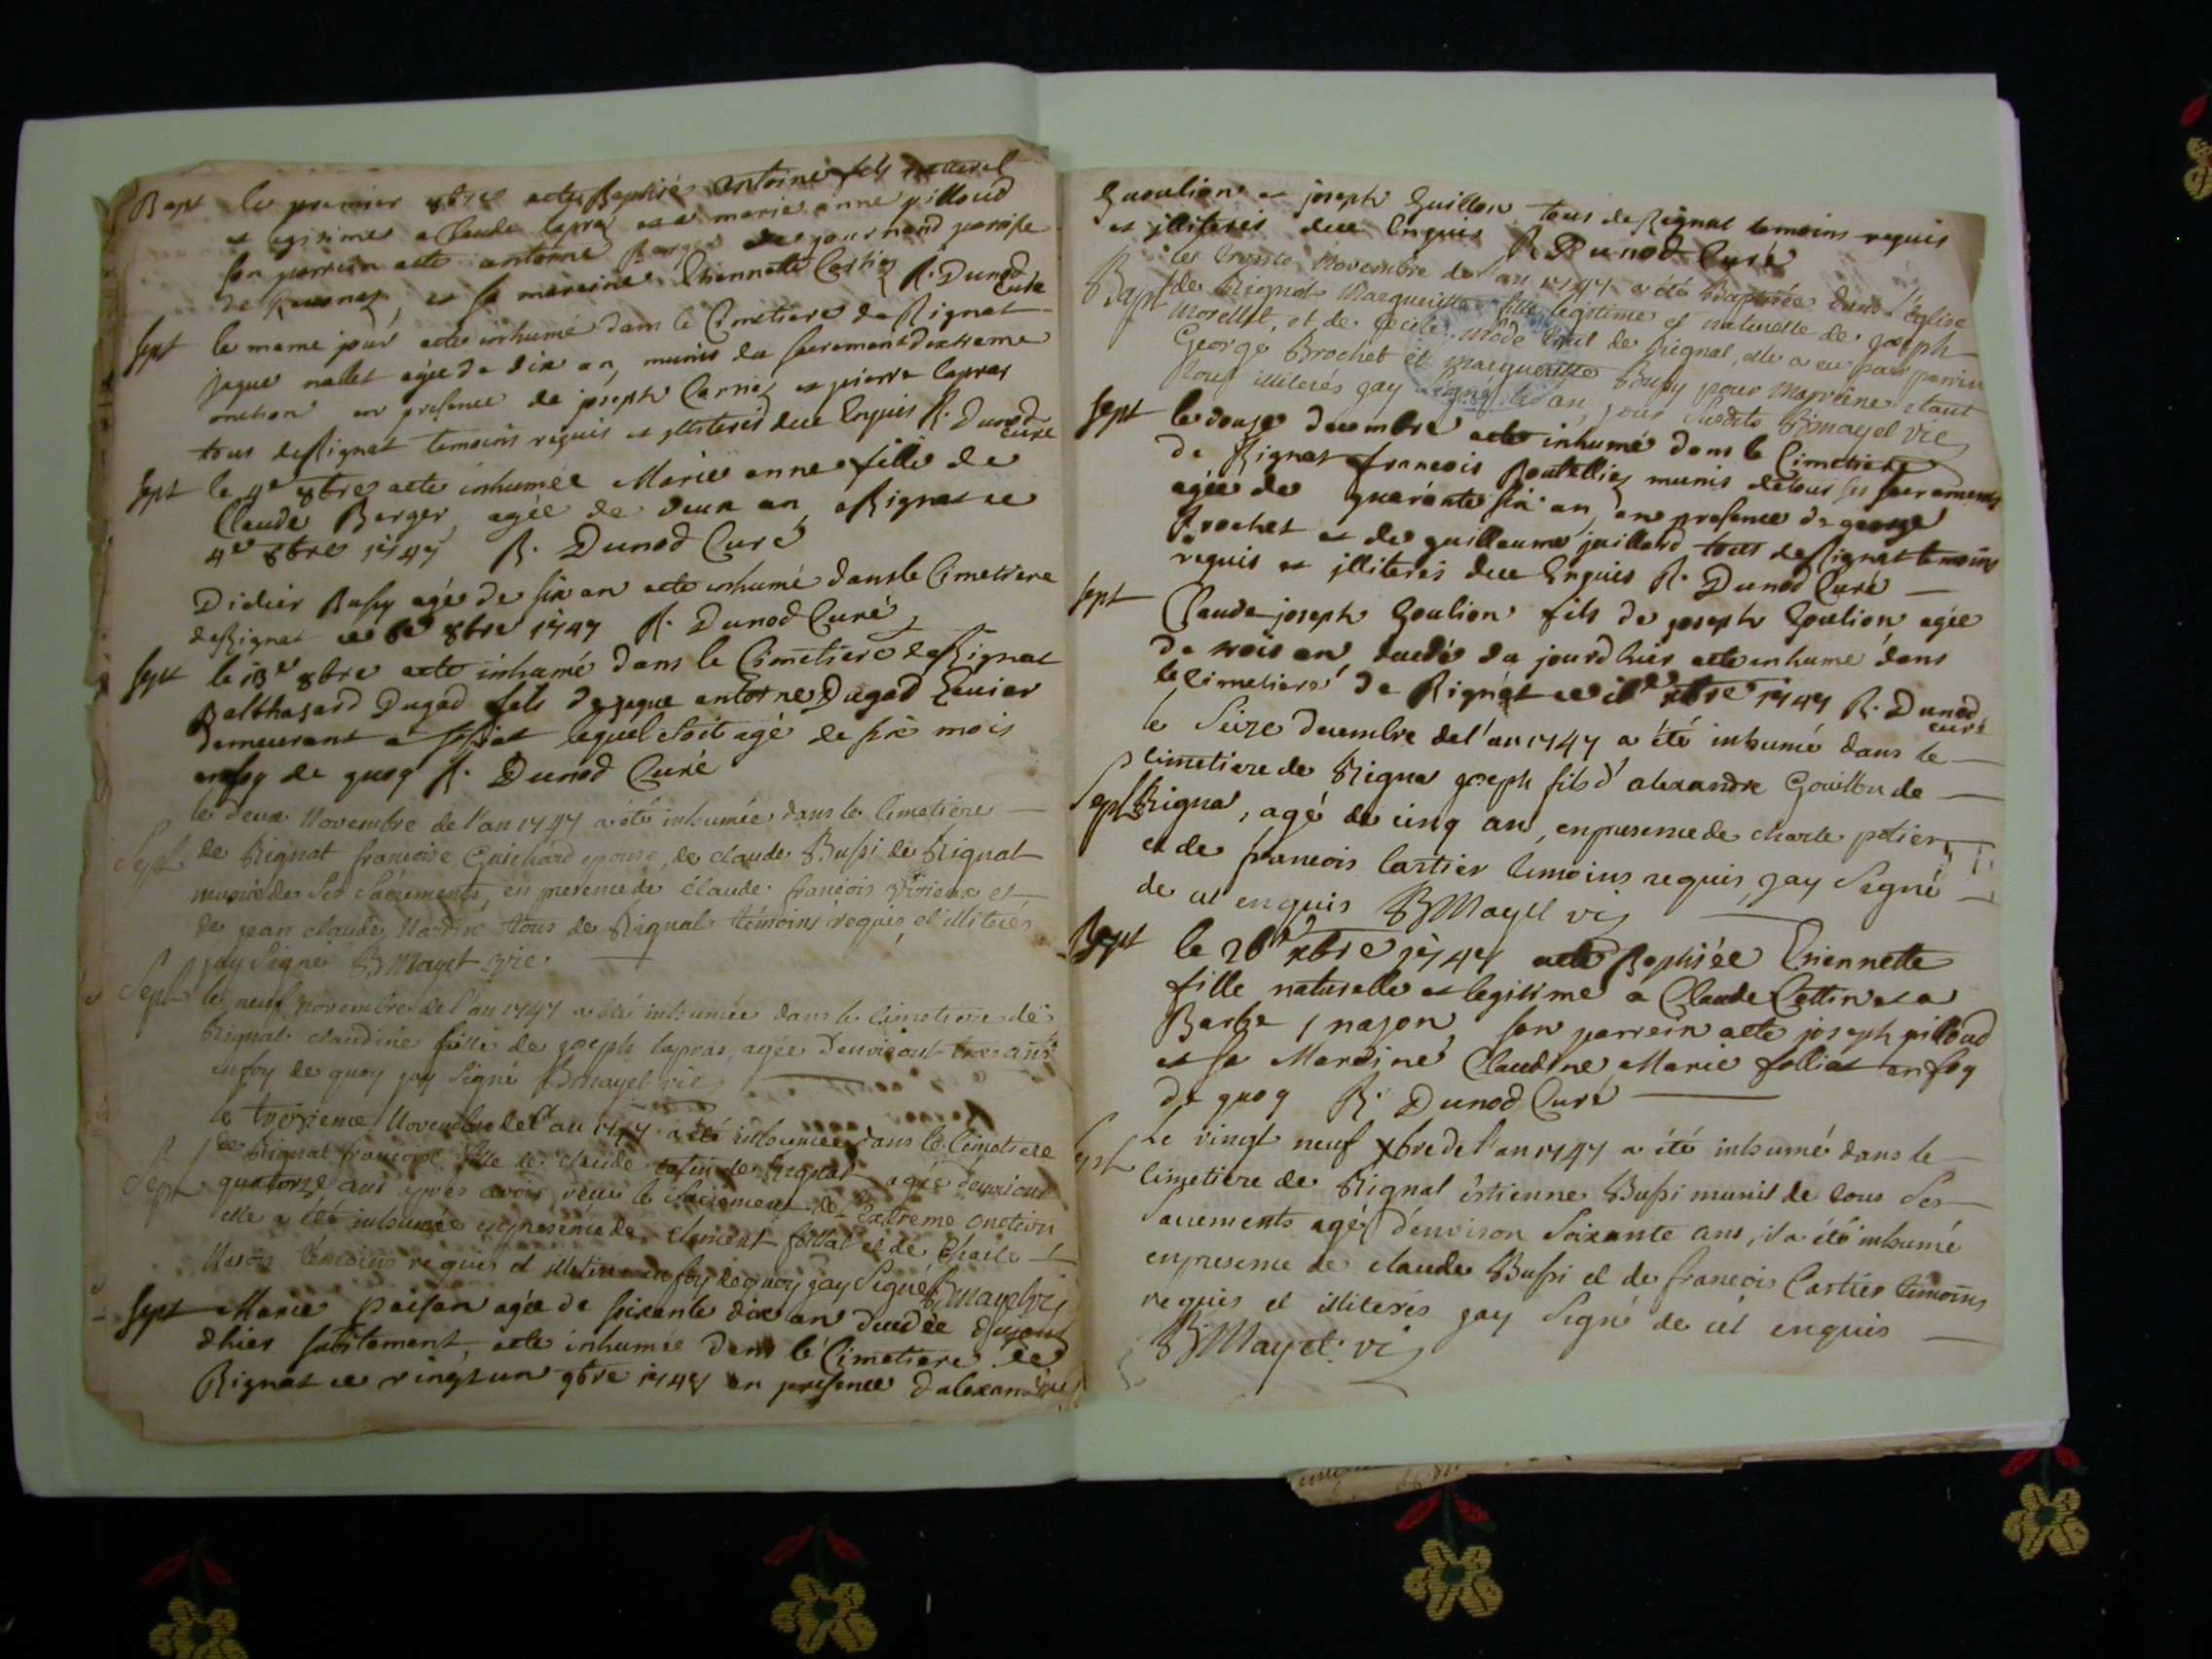 Bapt le premier 8bre aeté Baptisé antoine fils naturel
et legitime a Claude lapraz et a marie anne pilloud
son parrein aeté antoine Berger de journand paroisse
de Revonas, et sa mareine Thiennette Cartier R. Dunod
Curé
Sept le meme jour aeté inhumé dans le Cimetiere de Rignat
jaque nallet agée de dix an, munis du sacrement dextreme
onction en presence de joseph Carrier et pierre lapras
tous de Rignat temoins requis et illiterés deue Enquis R. Dunod
curé
Sept le 4e 8bre aeté inhumée Marie anne fille de
Claude Berger, agée de deux an, a Rignat ce
4e 8bre 1747 R. Dunod Curé
Didier Bussy agé de six an aeté inhumé dans le Cimetiere
de Rignat ce 6e 8bre 1747 R. Dunod Curé
Sept le 13e 8bre aeté inhumé dans le Cimetiere de Rignat
Balthasard Dugad fils de jaque antoine Dugad
demeurant a lequel etoit agé de six mois
en foy de quoy R. Dunod Curé
le deux Novembre de l'an 1747 a été inhumée dans le Cimetiere
Sept de Rignat francoise Guichard epouse de claude Bussi de Rignat
munie de ses sacrements, en presence de Claude francois et
de jean claude tous de Rignat témoins requis et illiterés
jay Signé B Mayet vic.
Sept le neuf novembre de l'an 1747 a été inhumée dans le Cimetiere de
Rignat claudine fille de joseph lapras, agée d'environt ans
en foy de quoy jay Signé B Mayet vic
le treizieme Novembre de l'an 1747 a été inhumée dans le Cimetiere
de Rignat francoise fille de claude de Rignat agée d'environt
Sept quatorze ans apres avoir reçue le Sacrement de Extreme onction
elle a été inhumée en presence de Clement folliat et de Charle
témoins requis et illiterés en foy de quoy jay Signé B Mayet vic
Sept Marie paisan agée de soixante dix an decedée dujourd
dhier subitement, aeté inhumée dans le Cimetiere de
Rignat ce vingt un 9bre 1747 en presence dalexandre
Goulion et joseph Guillon tous de Rignat temoins requis
et illiterés deue Enquis R Dunod Curé
le trente Novembre de l'an 1747 a été Baptisée dans l'église
Bapt de Rignat Margueritte fille legitime et naturelle de joseph
Morellet, et de Cecile de Rignat, elle a eu pour parrin
George Brochet et Margueritte Bussy pour Marreine etant
tous illiterés jay Signé les an, jour Susdits B Mayet vic
Sept le douze decembre aeté inhumé dans le Cimetiere
de Rignat francois Boutellier munis detous ses sacrements
agée de quarante six an, en presence de george
Brochet et de guillaume juillard tous de Rignat temoins
requis et illiterés deue Enquis R. Dunod Curé
Sept Claude joseph Goulion fils de joseph Goulion agée
de trois an decedé du jourd hier aeté inhumé dans
le cimetiere de Rignat ce xbre 1747 R. Dunod
curé
le Seize decembre de l'an 1747 a été inhumé dans le
cimetiere de Rignat joseph fils d'alexandre Gouillon de
Sept Rignat, agé de cinq ans, en presence de charle potier
et de francois Cartier témoins requis, jay Signé
de ce enquis B Mayet vic
Bapt le 26e xbre 1747 aeté Baptisée Thiennette
fille naturelle et legitime a Claude Cottin et a
Barbe nazon son parrein aeté joseph pilloud
et sa Mareine Claudine Marie folliat en foy
de quoy R. Dunod Curé
Sept Le vingt neuf xbre de l'an 1747 a été inhumé dans le
cimetiere de Rignat éstienne Bussi munit de tous Ses
Sacrements agé d'environ Soixante ans, il a été inhumé
en presence de claude Bussi et de françois Cartier témoins
requis et illiterés jay Signé de cé enquis
B Mayet vic